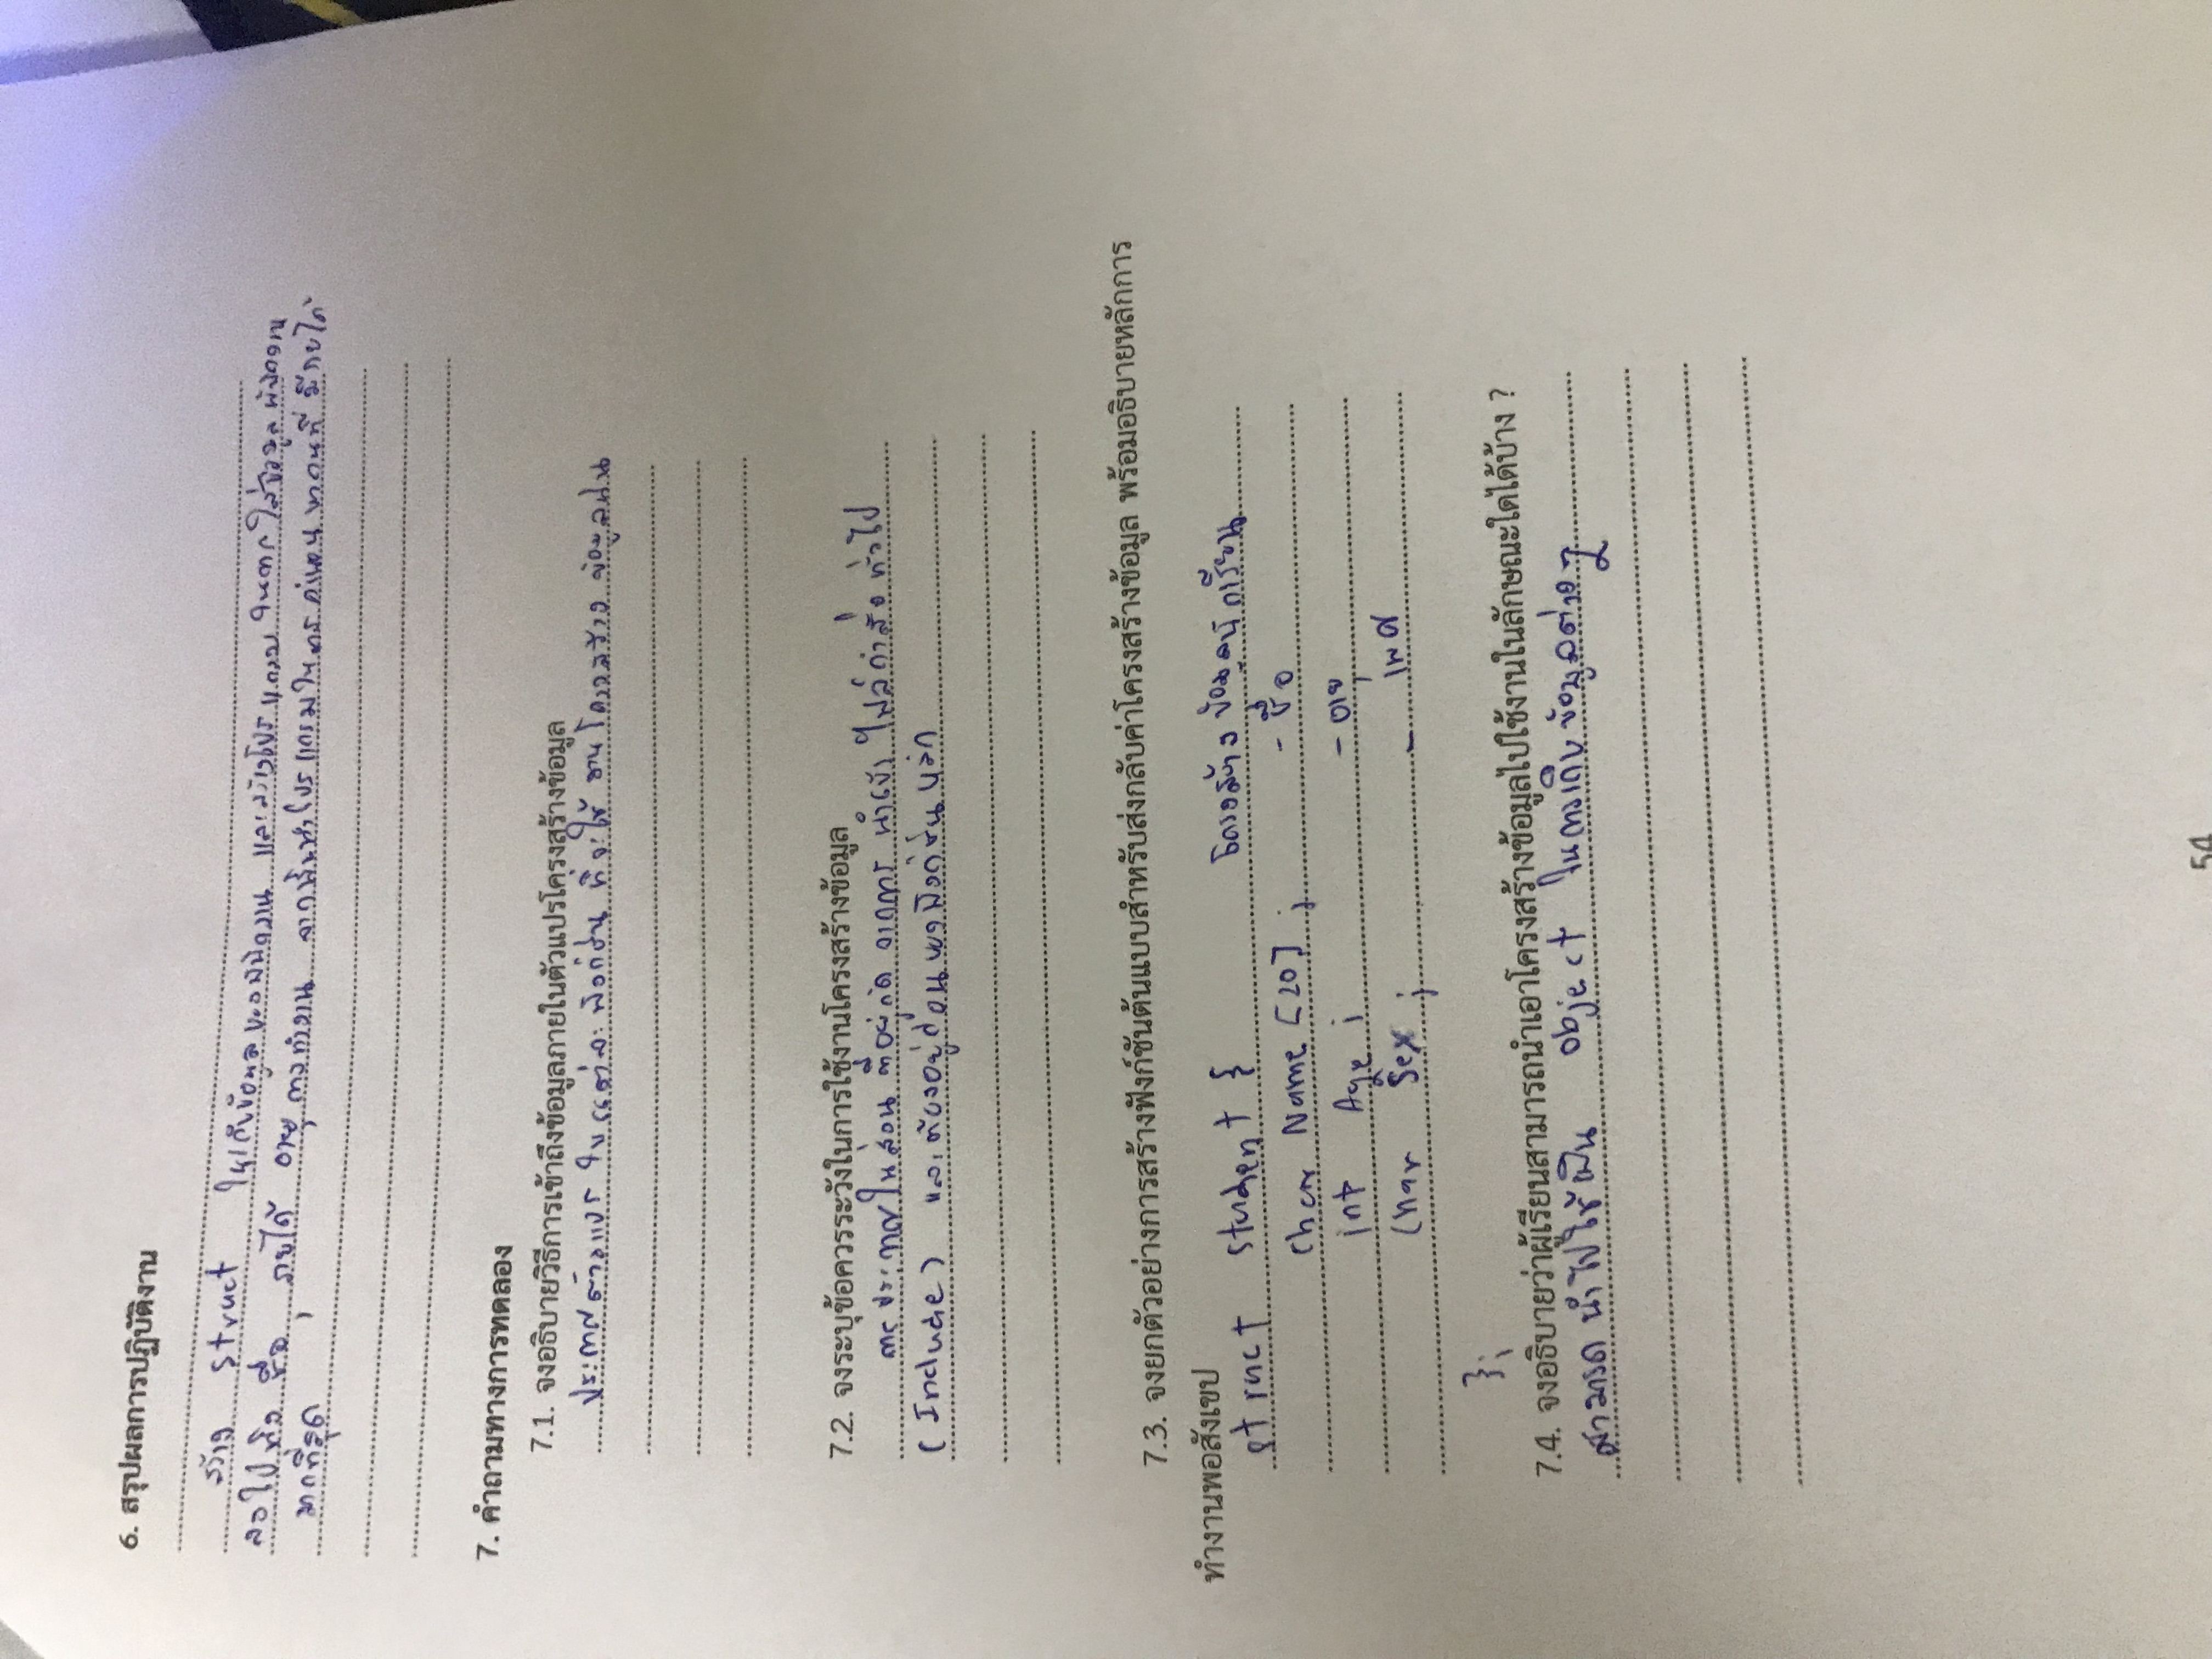 6. สรุปผลการปฏิบัติงาน
สร้าง struct ในเก็บข้อมูลของพนักงาน และสร้างโปรแกรมในการใส่ข้อมูลพนักงาน
ลงไปทั้ง ชื่อ, รายได้ อายุการทำงาน จากนั้นทำโปรแกรมในการคำนวนหาคนที่มีรายได้
มากที่สุด
7. คำถามทางการทดลอง
7.1. จงอธิบายวิธีการเข้าถึงข้อมูลภายในตัวแปรโครงสร้างข้อมูล
ประกาศตัวแปร ในแต่ละ ฟังก์ชั่น ที่จะใช้ งานโครงสร้าง ข้อมูลนั้น
7.2. จงระบุข้อควรระวังในการใช้งานโครงสร้างข้อมูล
การประกาศในส่วน ที่อยู่ถัด จากการ นำเข้า ไฟล์คำสั่ง ทั่วไป
(Include) และต้องอยู่ก่อนของฟังก์ชั่นหลัก
7.3. จงยกตัวอย่างการสร้างฟังก์ชันต้นแบบสำหรับส่งกลับค่าโครงสร้างข้อมูล พร้อมอธิบายหลักการ
ทำงานพอสังเขป
struct student { โครงสร้าง ข้อมูลนักเรียน
char Name [20] ; - ชื่อ
int Age ; - อายุ
char Sex ; - เพศ
};
7.4. จงอธิบายว่าผู้เรียนสามารถนำเอาโครงสร้างข้อมูลไปใช้งานในลักษณะใดได้บ้าง ?
สามารถ นำไปใช้เป็น object ในการเก็บข้อมูลต่างๆ
54